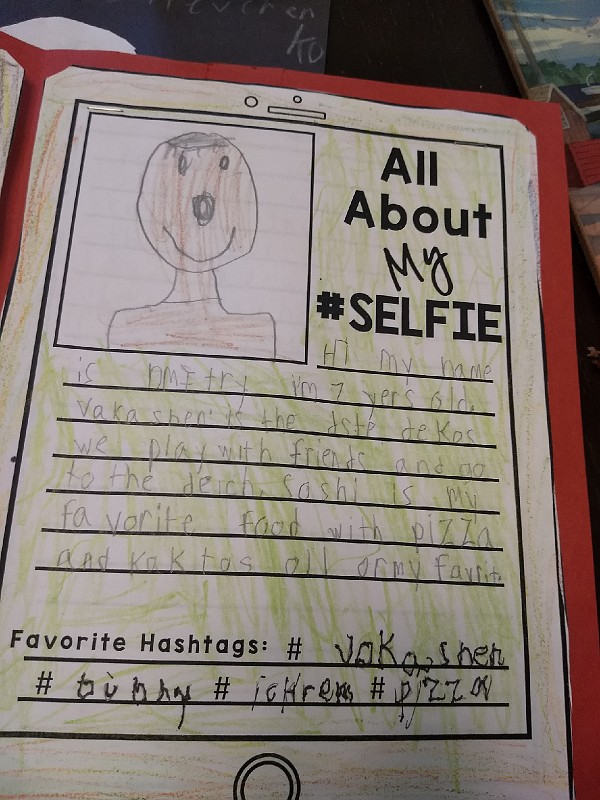 All
About
My
#SELFIE
Hi my name
is DMItry im 7 yers old.
Vakashen is the dste de kos
we play with friends and go
to the deich. Soshi is my
favorite food with pizza
and kaktos oll ormy favrit
Favorite Hashtags: # vakashen
# # ickrem # pizza